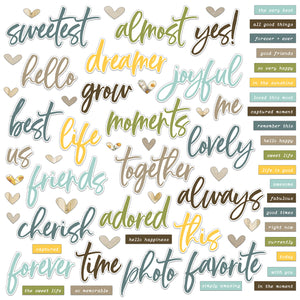 sweetest
almost
yes!
hello
dreamer
joyful
grow
me
best
life
moments
lovely
us
friends
together
always
cherish
adored
this
forever
time
photo
favorite
captured
hello happiness
the sweet life
so memorable
simply amazing
in the moment
the very best
all good things
forever + ever
good friends
so very happy
in the sunshine
loved this most
captured moment
remember this
hello happy
sweet life
life is good
awesome
fabulous
good times
right now
currently
today
with you